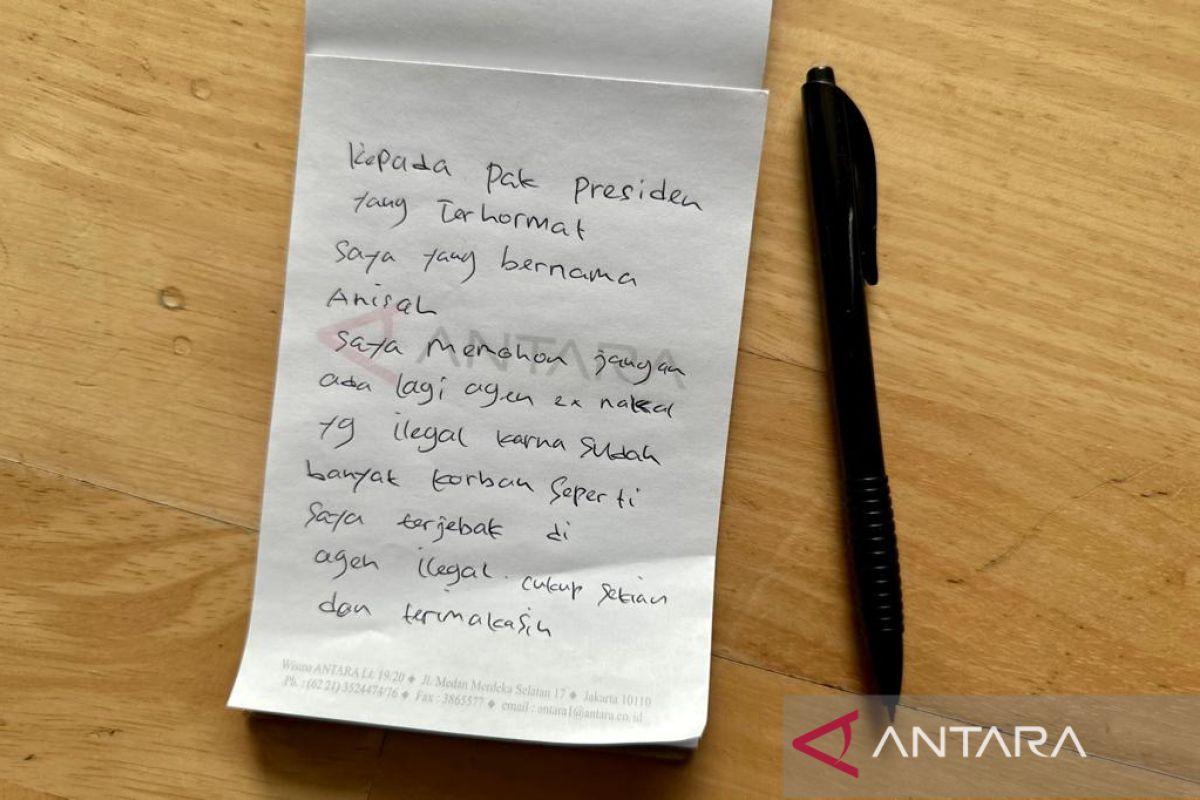 Kepada Pak Presiden
yang Terhormat
Saya yang bernama
Anisah
ANTARA
Saya memohon jangan
ada lagi agen ex nakal
yg ilegal karna sudah
banyak korban seperti
saya terjebak di
agen ilegal. cukup sekian
dan terimakasih
Wisma ANTARA Lt. 19.20 ◆ Jl. Medan Merdeka Selatan 17 ◆ Jakarta 10110
Ph. : (62 21) 3524474/76 ◆ Fax : 3865577 ◆ email : antara1@antara.co.id
ANTARA